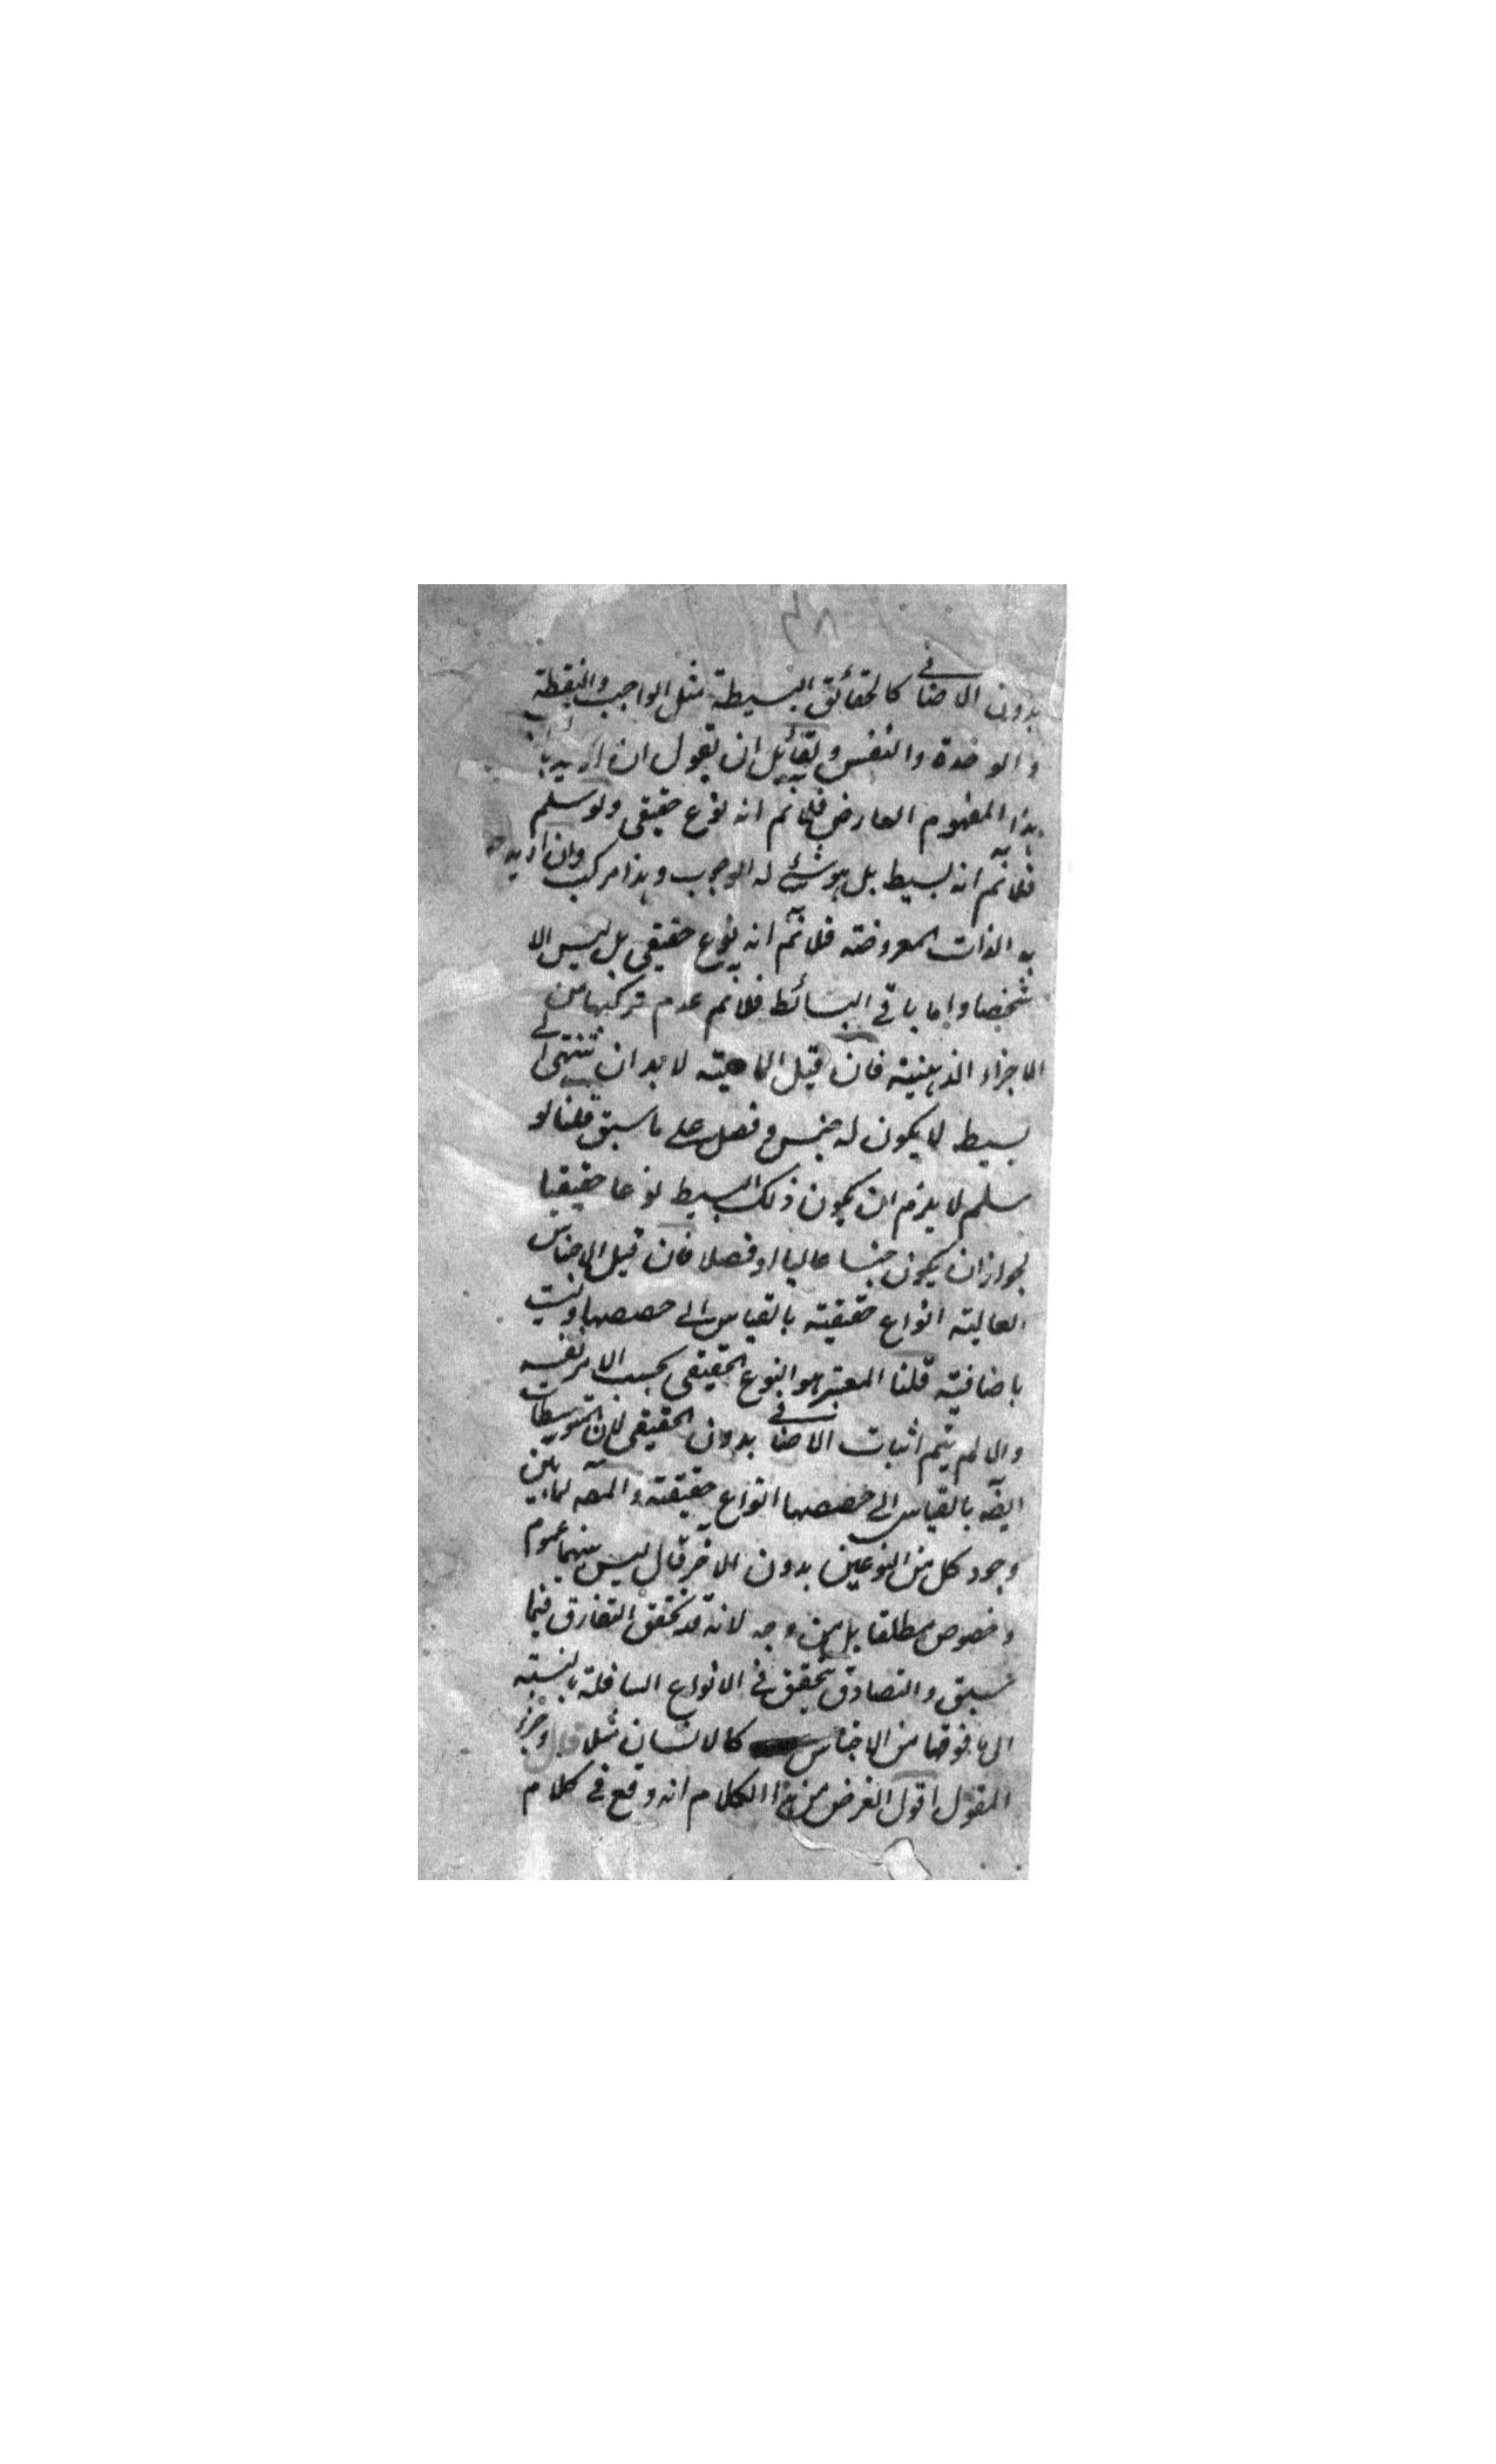 بدون الاضافي كالحقائق البسيطة مثل الواجب والنقطة
والوحدة والنفس ولقائل ان يقول ان اريد با
هذا المفهوم العارض فلا نم انه نوع حقيقي ولو سلم
فلا نم انه بسيط بل هو شئ له الوجوب وهذا مركب وان اريد
به الذات المعروضة فلا نم انه نوع حقيقي بل ليس الا
شخصا واما باقي البسائط فلا نم عدم تركبها من
الاجزاء الذهنية فان قيل الماهية لا بد ان تنتهي الى
بسيط لا يكون له جنس وفصل على ما سبق قلنا لو
سلم لا يلزم ان يكون ذلك البسيط نوعا حقيقيا
لجواز ان يكون جنسا عاليا او فصلا فان قيل الاجناس
العالية انواع حقيقية بالقياس الى حصصها وليست
باضافية قلنا المعتبر هو النوع الحقيقي بحسب الامر نفسه
والا لم يتم اثبات الاضافي بدون الحقيقي لان المتوسطات
ايضه بالقياس الى حصصها انواع حقيقية والمصه لما بين
وجود كل من النوعين بدون الاخر قال ليس بينهما عموم
وخصوص مطلقا بل من وجه لانه قد تحقق التفارق فيما
سبق والتصادق يتحقق في الانواع السافلة بالنسبة
الى ما فوقها من الاجناس كالانسان مثلا قال وجزء
المقول اقول الغرض من هذا الكلام انه وقع في كلام